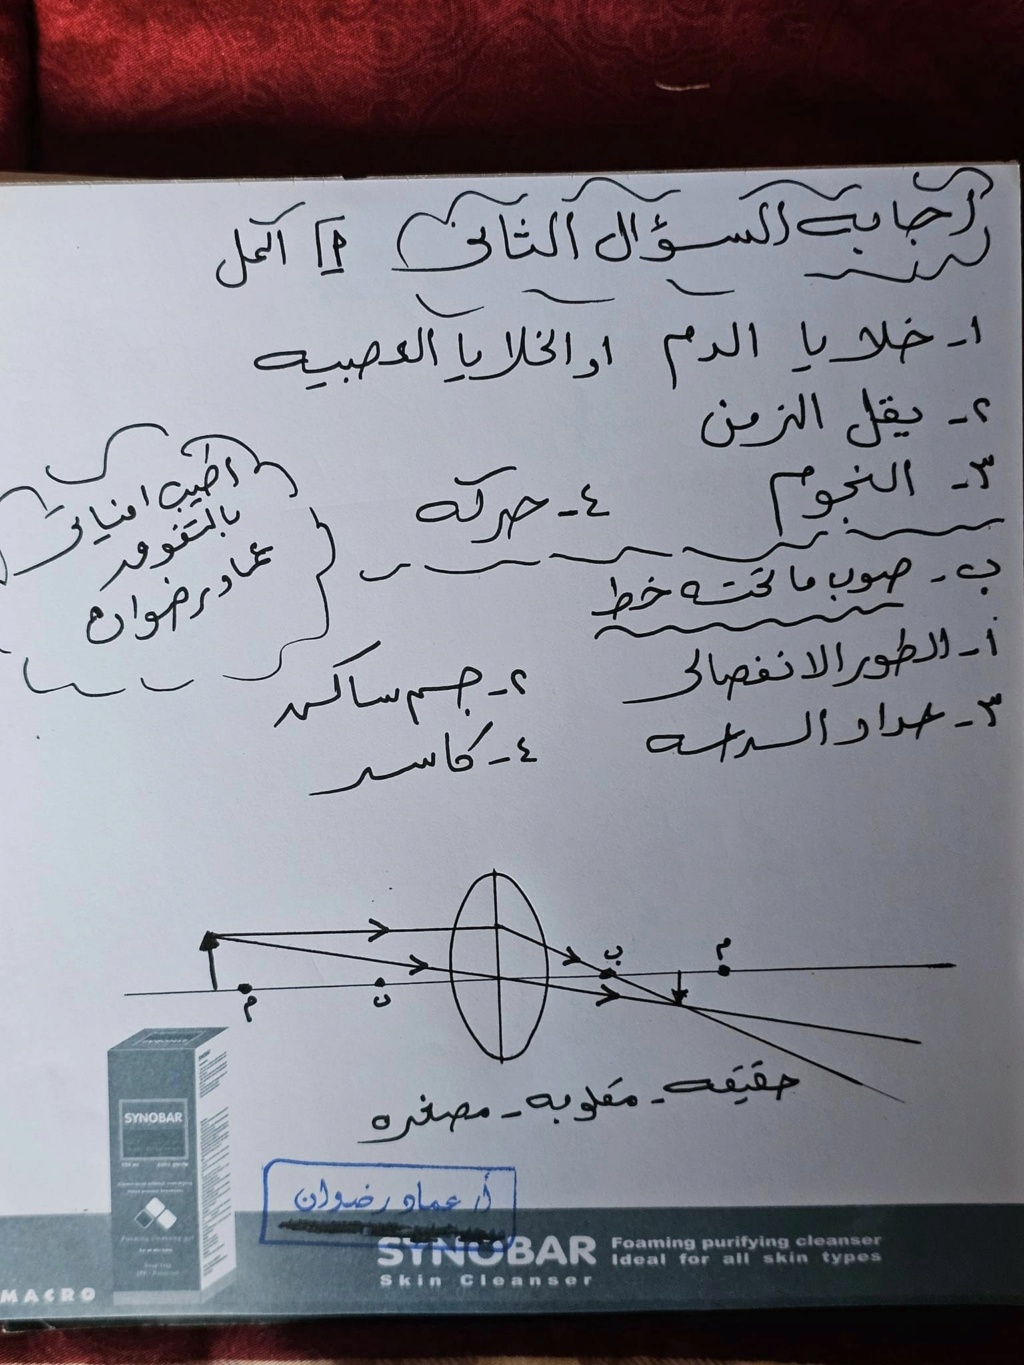 إجابة السؤال الثاني أ اكمل
١- خلايا الدم او الخلايا العصبيه
٢- يقل الزمن
٣- النجوم ٤- حركه
اطيب امنياتي
بالتفوق
عماد رضوان
ب- صوب ما تحته خط
١- الطور الانفصالى ٢- جسم ساكن
٣- عداد السرعه ٤- كاسر
م ب م ن
حقيقيه - مقلوبه - مصغره
أ/ عماد رضوان
SYNOBAR
SYNOBAR Foaming purifying cleanser
Ideal for all skin types
Skin Cleanser
MACRO